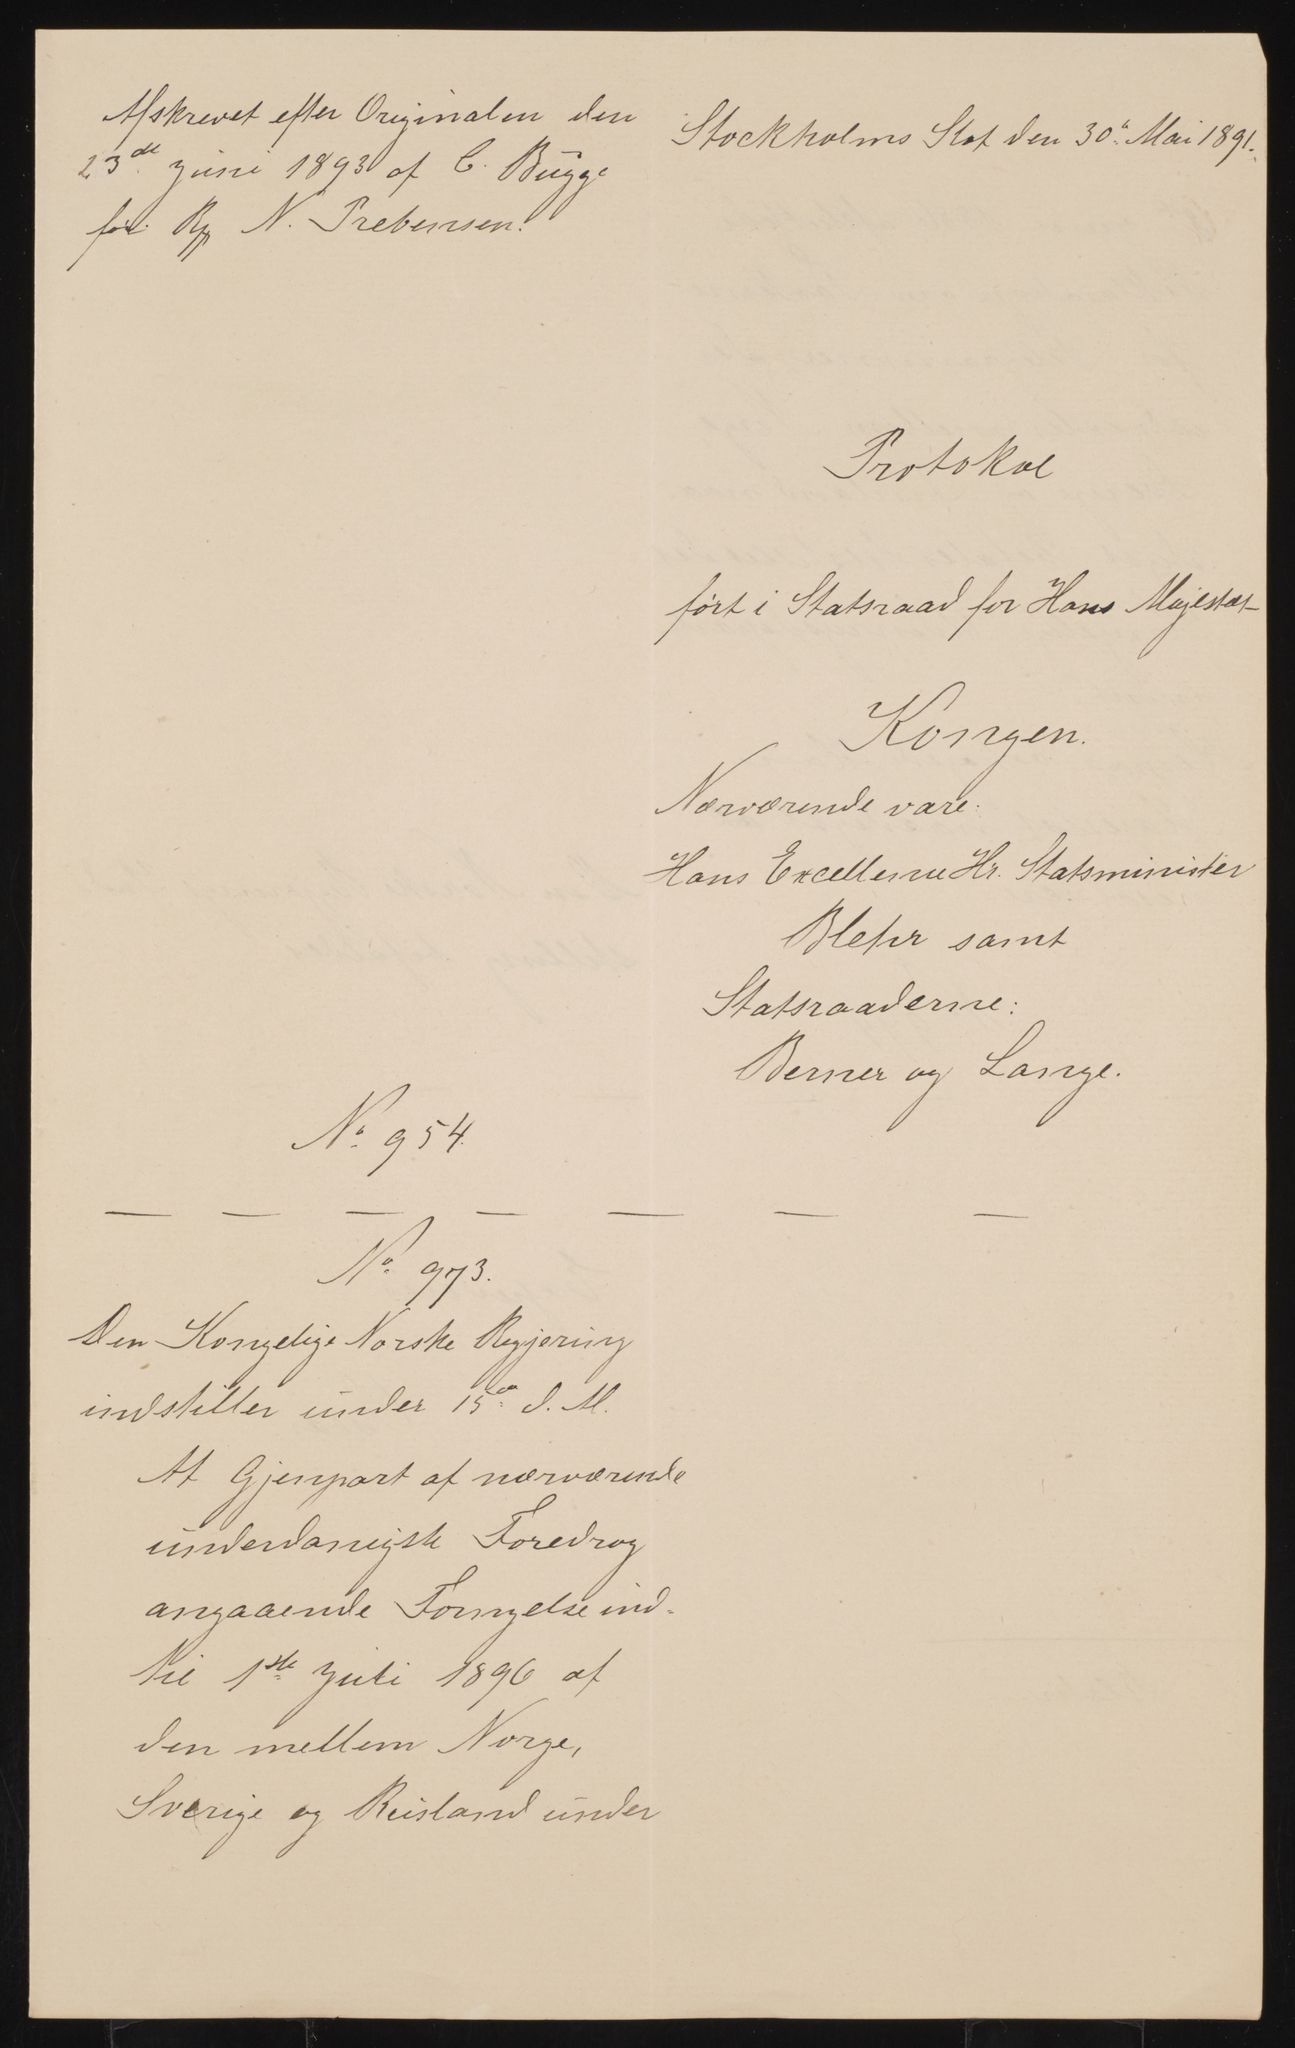 Afskrevet efter Originalen den
23de Juni 1893 af C. Bugge
for N. Prebensen.
Stockholms Slot den 30te Mai 1891.
Protokol
ført i Statsraad for Hans Majestæt
Kongen.
Nærværende vare:
Hans Excellence Hr. Statsminister
Blehr samt
Statsraaderne:
Berner og Lange.
No. 954.
— — — — — — —
No. 973.
Den Kongelige Norske Regjering
indstiller under 15de d. M.
At Gjenpart af nærværende
underdanigste Foredrag
angaaende Fornyelse ind-
til 1ste Juli 1896 af
den mellem Norge,
Sverige og Rusland under